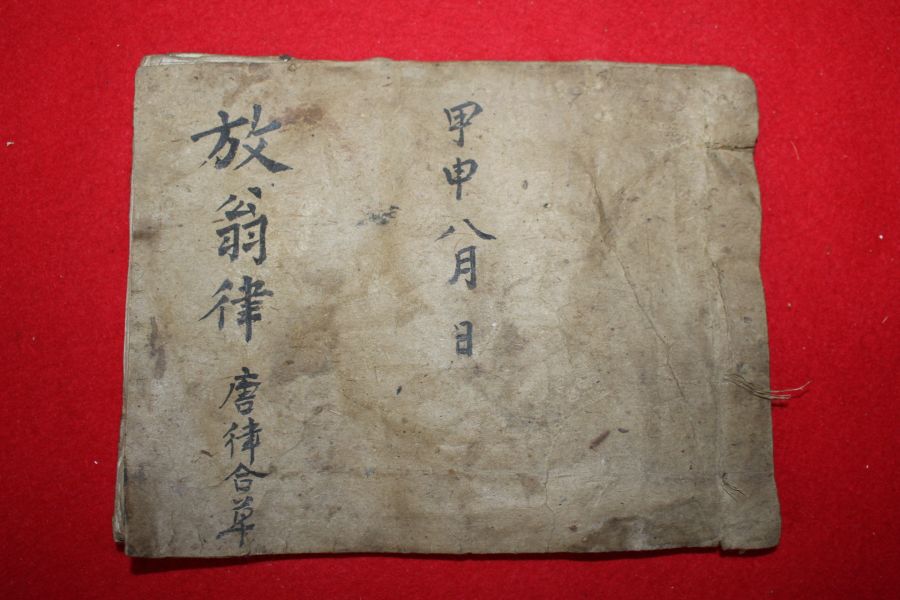 甲申八月 日
放翁律 唐律合草